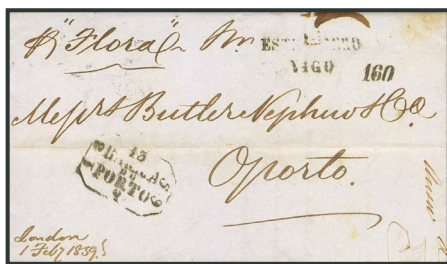 "Flora"
VIGO
160
Messrs Butler Nephew & Co
Oporto.
13
PORTO
London
1 Feby 1839